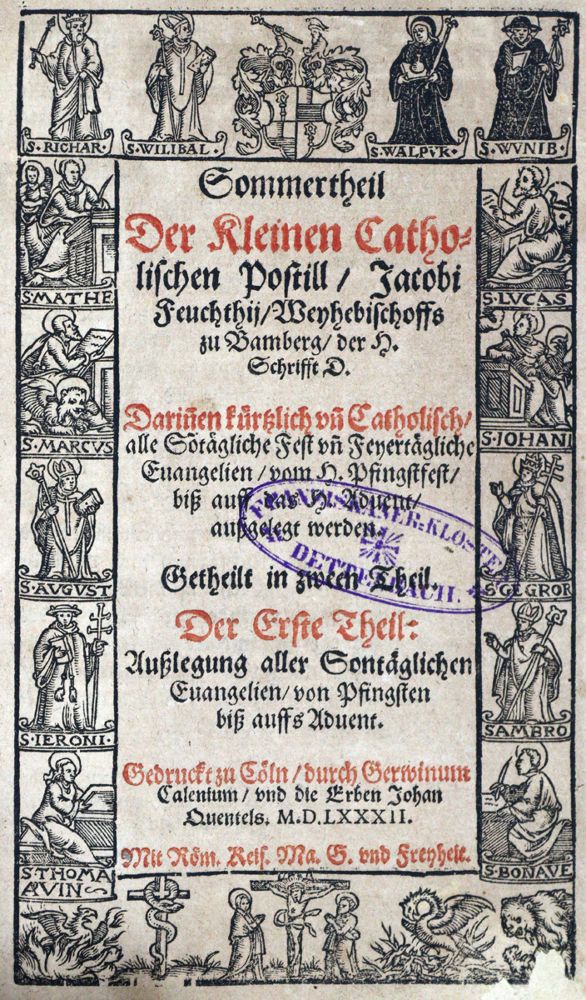 S·RICHAR·
S·WILIBAL·
S·WALPVR·
S·WVNIB·
Sommertheil
Der Kleinen Catho-
lischen Postill / Jacobi
Feuchthij / Weyhebischoffs
zu Bamberg / der H.
Schrifft D.
Dariñen kürtzlich vñ Catholisch /
alle Sõtägliche Fest vñ Feyertägliche
Euangelien / vom H. Pfingstfest /
biß auff das H. Aduent /
außgelegt werden.
Getheilt in zween Theil.
Der Erste Theil:
Außlegung aller Sontäglichen
Euangelien / von Pfingsten
biß auffs Aduent.
Gedruckt zu Cöln / durch Gerwinum
Calenium / vnd die Erben Johan
Quentels. M.D.LXXXII.
Mit Röm. Keis. Ma. G. vnd Freyheit.
S·MATHE
S·MARCVS
S·AVGVST
S·IERONI·
S·THOMA
AQVIN
S·LVCAS
S·IOHANI
S·GEGROR
SAMBRO
S·BONAVE
FRANZISKANER-KLOSTER
DETTELBACH.